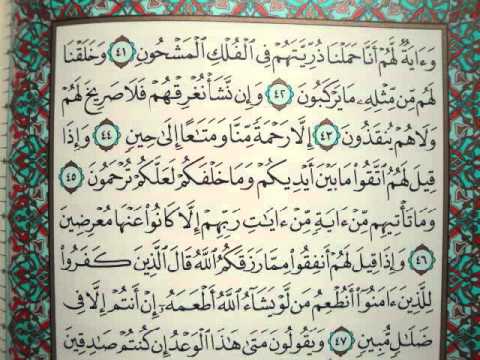 وَءَايَةٌ لَّهُمْ أَنَّا حَمَلْنَا ذُرِّيَّتَهُمْ فِى ٱلْفُلْكِ ٱلْمَشْحُونِ ٤١ وَخَلَقْنَا
لَهُم مِّن مِّثْلِهِۦ مَا يَرْكَبُونَ ٤٢ وَإِن نَّشَأْ نُغْرِقْهُمْ فَلَا صَرِيخَ لَهُمْ
وَلَا هُمْ يُنقَذُونَ ٤٣ إِلَّا رَحْمَةً مِّنَّا وَمَتَٰعًا إِلَىٰ حِينٍ ٤٤ وَإِذَا
قِيلَ لَهُمُ ٱتَّقُوا۟ مَا بَيْنَ أَيْدِيكُمْ وَمَا خَلْفَكُمْ لَعَلَّكُمْ تُرْحَمُونَ ٤٥
وَمَا تَأْتِيهِم مِّنْ ءَايَةٍ مِّنْ ءَايَٰتِ رَبِّهِمْ إِلَّا كَانُوا۟ عَنْهَا مُعْرِضِينَ
٤٦ وَإِذَا قِيلَ لَهُمْ أَنفِقُوا۟ مِمَّا رَزَقَكُمُ ٱللَّهُ قَالَ ٱلَّذِينَ كَفَرُوا۟
لِلَّذِينَ ءَامَنُوٓا۟ أَنُطْعِمُ مَن لَّوْ يَشَآءُ ٱللَّهُ أَطْعَمَهُۥٓ إِنْ أَنتُمْ إِلَّا فِى
ضَلَٰلٍ مُّبِينٍ ٤٧ وَيَقُولُونَ مَتَىٰ هَٰذَا ٱلْوَعْدُ إِن كُنتُمْ صَٰدِقِينَ